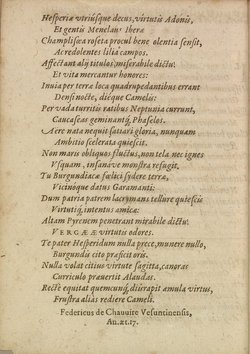 Hesperiæ utriúsque decus, virtutis Adonis,
Et gentis Menelau' Iberæ
Champlissæa roseta procul bene olentia sensit,
Acredolentes lilia campos.
Affectant alij titulos, miserabile dictu!
Et vita mercantur honores:
Invia per terræ loca quadrupedantibus errant
Densi nocte, dieque Camelis.
Per dumeta ratibus Neptunia currunt,
Caucaseas geminantq; Phaselos.
Aere nata nequit satiari gloria, nunquam
Ambitio scelerata quiescit.
Non maris obliquos fluctus, non tela, nec ignes
Vsquam, insanæve monstra refugit.
Tu Burgundiacæ fœlici sydere terræ,
Vicinoque datus Garamanti:
Dum patria patrem lacrymans tellure quiescis
Virtutíq; intentus amica:
Altam Pyrenem penetrant mirabile dictu!
VERGÆÆ virtutis odores.
Te pater Hesperidum nulla prece, munere nullo,
Burgundiis cito præficit oris.
Nulla volat citius virtute sagitta, canoras
Curriculo prævertit Alaudas.
Recte equitat quemcunq; diu rapit æmula virtus,
Frustra alias rediere Cameli.
Federicus de Chauvire Vesuntinensis,
An. æt. 17.